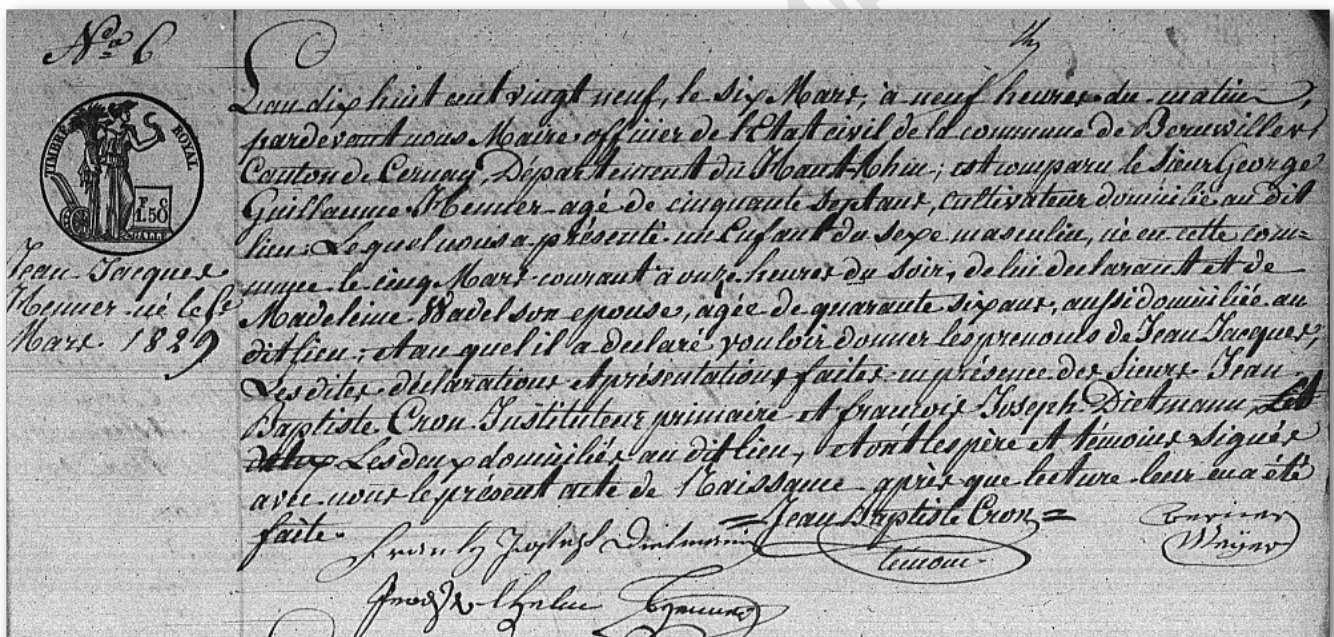 N° 6
TIMBRE ROYAL
F. C
1.50
Jean Jacques
Henner né le 5e
Mars 1829
L'an dix huit cent vingt neuf, le six Mars, à neuf heures du matin,
pardevant nous Maire officier de l'Etat civil de la commune de Bernwiller,
Canton de Cernay, Département du Haut-Rhin; est comparu le Sieur George
Guillaume Henner agé de cinquante sept ans, cultivateur domicilié au dit
lieu; Lequel nous a présenté un Enfant du sexe masculin, né en cette com=
munee le cinq Mars courant à onze heures du soir, de lui declarant et de
Madeleine Wadel son epouse, agée de quarante six ans, aussi domiciliée au
dit lieu; et au quel il a declaré vouloir donner les prenoms de Jean Jacques,
Lesdites déclarations et présentations faites en présence des Sieurs Jean
Baptiste Cron Instituteur primaire et francois Joseph Dietmann
Les deux domiciliés au dit lieu, et ont les père et témoins signés
avec nous le présent acte de Naissance après que lecture leur en a été
faite.
= Jean Baptiste Cron =
témoin
Joseph Dietmann
Meÿer